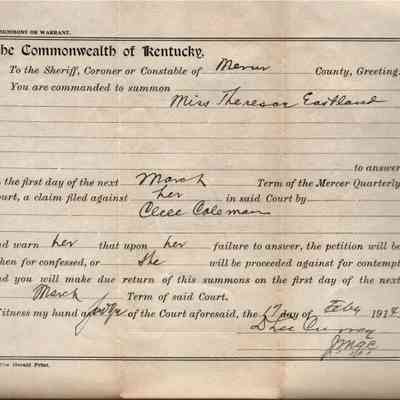 SUMMONS OR WARRANT.
The Commonwealth of Kentucky.
To the Sheriff, Coroner or Constable of Mercer County, Greeting.
You are commanded to summon
Miss Theresa Eastland
to answer
n the first day of the next March Term of the Mercer Quarterly
ourt, a claim filed against her in said Court by
Coleman
nd warn her that upon her failure to answer, the petition will be
aken for confessed, or She will be proceeded against for contempt
nd you will make due return of this summons on the first day of the next
March Term of said Court.
Witness my hand as Judge of the Court aforesaid, the 17 day of Feby 191
The Herald Print.